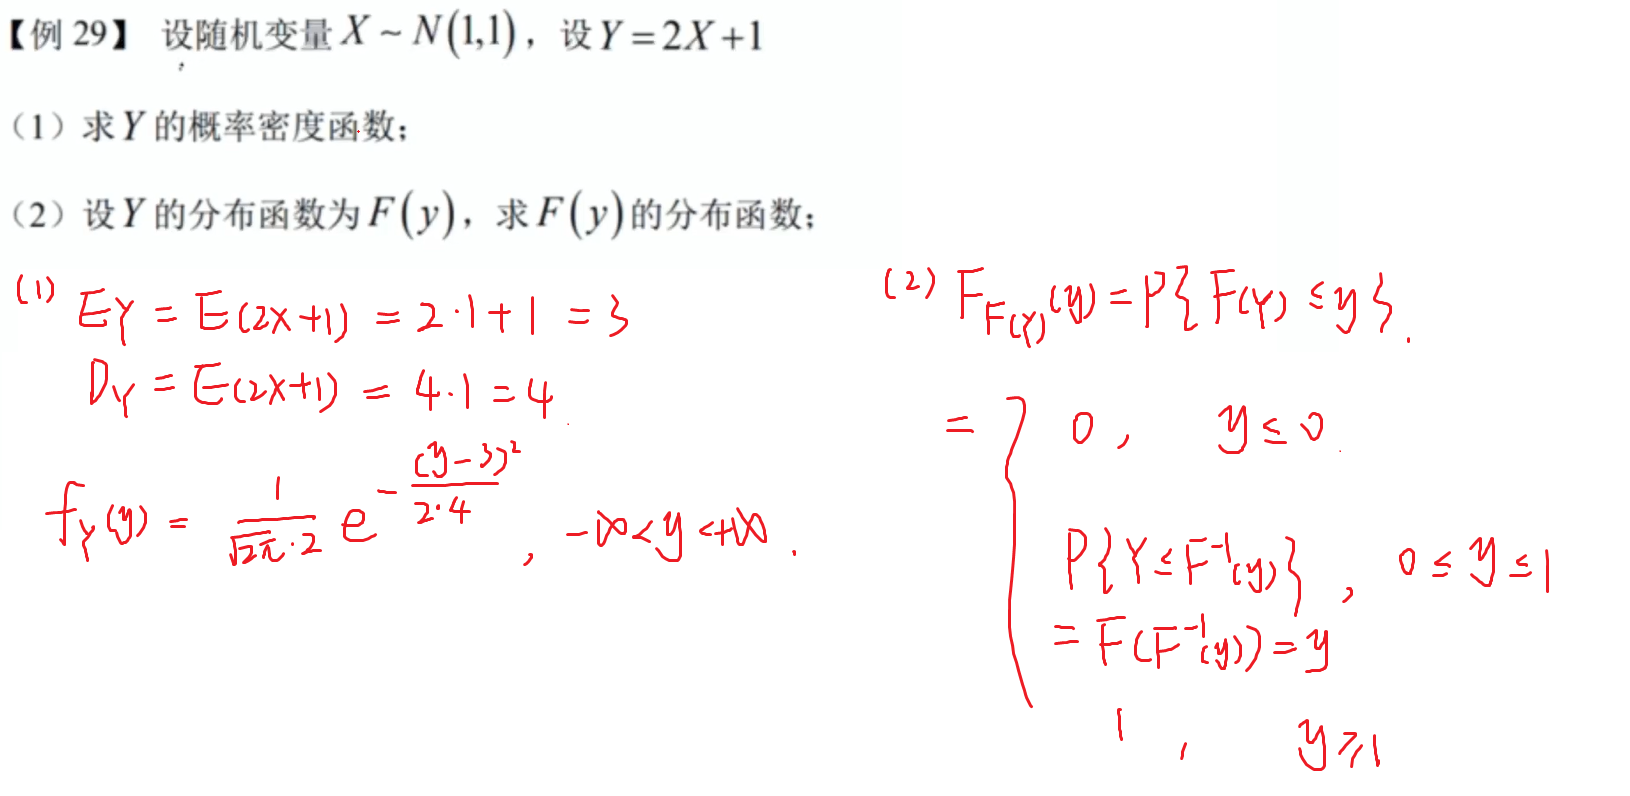 【例 29】 设随机变量 X ~ N(1,1)，设 Y = 2X +1
（1）求 Y 的概率密度函数；
（2）设 Y 的分布函数为 F(y)，求 F(y) 的分布函数；
(1) EY = E(2X+1) = 2·1+1 = 3
DY = E(2X+1) = 4·1 = 4
f_Y(y) = \frac{1}{\sqrt{2π}·2} e^{-\frac{(y-3)^2}{2·4}} , -∞<y<+∞ .
(2) F_{F(Y)}(y) = P{ F(Y) ≤ y }.
= { 0 , y ≤ 0
P{Y ≤ F^{-1}(y)} , 0 ≤ y ≤ 1
= F(F^{-1}(y)) = y
1 , y ≥ 1